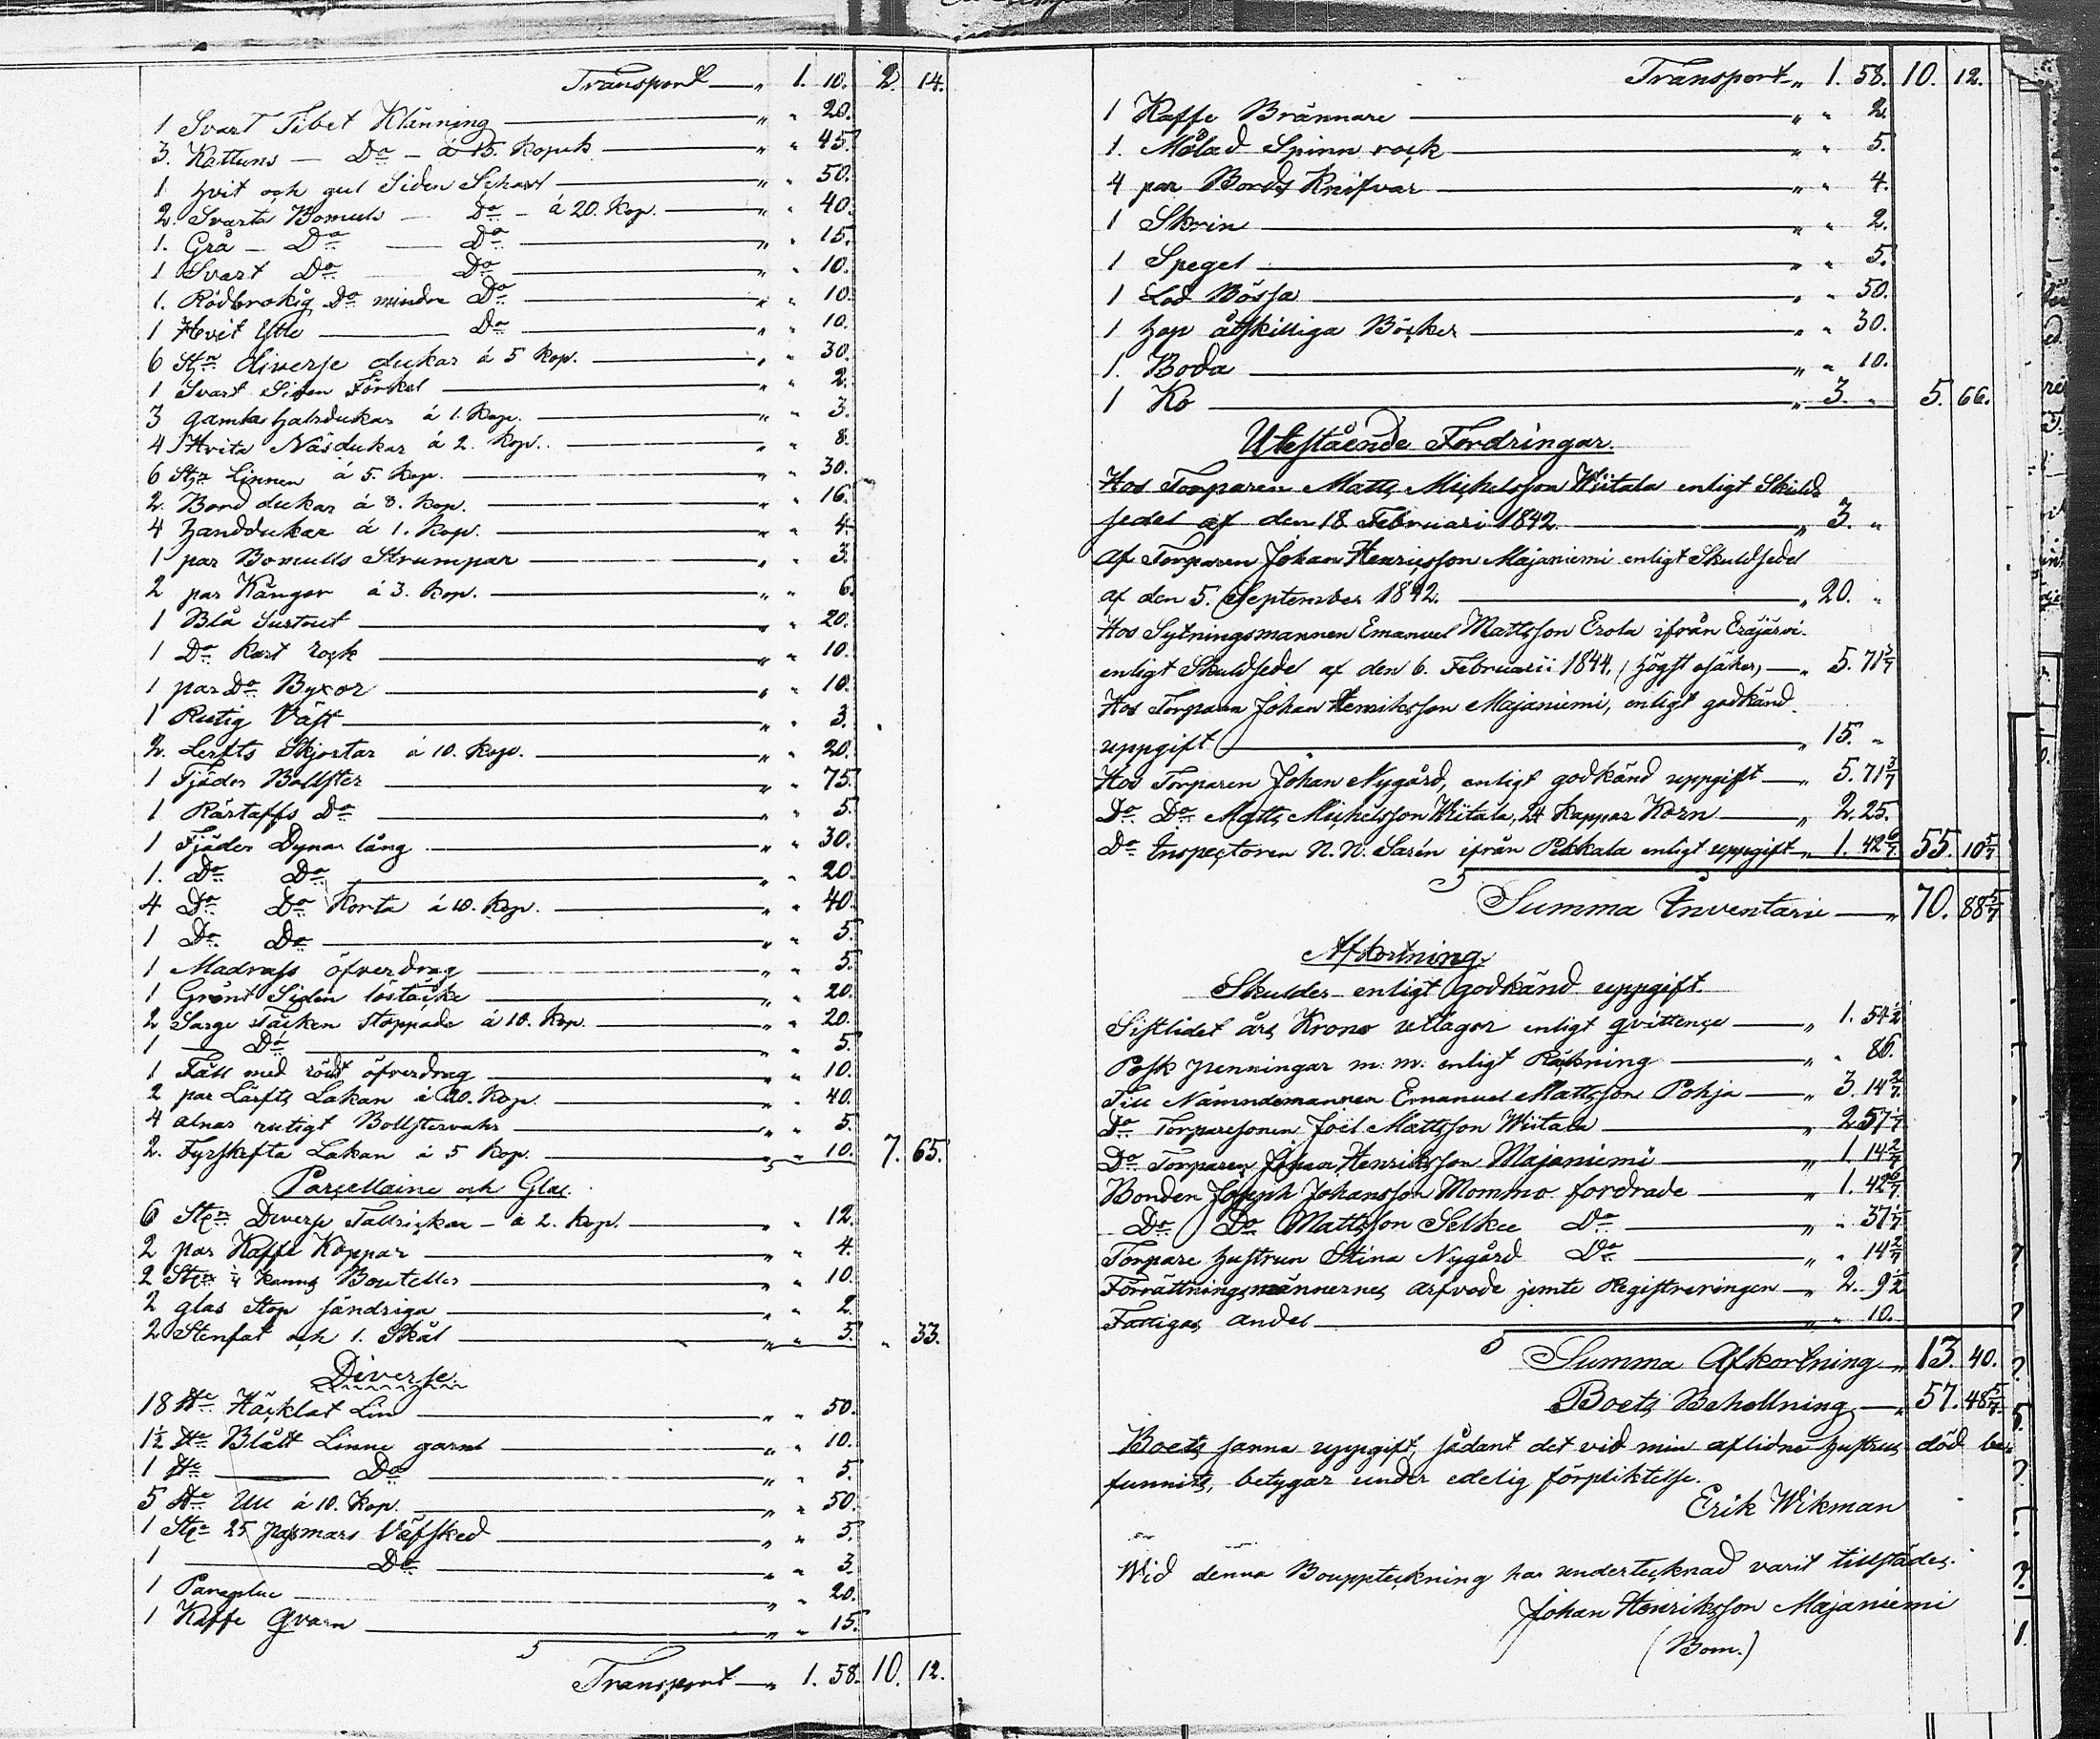 Transport — „ 1. 10. 2. 14.
1 Svart Tibet Klänning — „ „ 20.
3. Kattuns — Do — á 15. Kopek — „ „ 45.
1 hvit och gul Siden Schavl — „ „ 50.
2. Svarta Bomuls — Do — á 20. Kop. — „ „ 40.
1. Grå — Do — Do — „ „ 15.
1 Svart Do — Do — „ „ 10.
1. Rödbrokig Do mindre Do — „ „ 10.
1 Hvit Ylle — Do — „ „ 10.
6 Stn diverse dukar á 5 Kop. — „ „ 30.
1 Svart Siden Förkel — „ „ 2.
3 gamla halsdukar á 1. Kop. — „ „ 3.
4 Hvita Näsdukar á 2. Kop. — „ „ 8.
6 Stn Linnen á 5. Kop. — „ „ 30.
2. Bord dukar á 8. Kop. — „ „ 16.
4 handdukar á 1. Kop. — „ „ 4.
1 par Bomulls Strumpar — „ „ 3.
2 par Kängor á 3. Kop. — „ „ 6.
1 Blå Surtout — „ „ 20.
1 Do Kort rock — „ „ 10.
1 par Do Byxor — „ „ 10.
1 Rutig Väst — „ „ 3.
2. Lerfts Skjortar á 10. Kop. — „ „ 20.
1 Fjäder Bollster — „ „ 75.
1 Rårtaffs Do — „ „ 5.
1 Fjäder Dynar lång — „ „ 30.
1. Do Do — „ „ 20.
4 Do Do Korta á 10. Kop. — „ „ 40.
1 Do Do — „ „ 5.
1 Madrass öfverdrag — „ „ 5.
1 Grönt Siden löstäcke — „ „ 20.
2 Sarge täcken stoppade á 10. Kop. — „ „ 20.
1 — Do — „ „ 5.
1 Fäll med rödt öfverdrag — „ „ 10.
2 par Lärfts Lakan á 20. Kop. — „ „ 40.
4 alnar rutigt Bollstervahr — „ „ 5.
2. Fyrskefta Lakan á 5 Kop. — „ „ 10. 7. 65.
Porcellaine och Glas.
6 Stn Diverse Tallrickar — á 2. Kop. — „ 12.
2 par Kaffe Koppar — „ 4.
2 Stn ¼ Kanns Bouteller — „ 10.
2 glas Stop söndriga — „ 2.
2 Stenfat och 1. Skål — „ „ 5. „ 33.
Diverse.
18 ℔ Häcklat Lin — „ „ 50.
1½ ℔ Blått Linne garn — „ „ 10.
1 ℔ — Do — „ „ 5.
5 ℔ Ull á 10. Kop. — „ „ 50.
1 Stn 25 pasmars Väfsked — „ „ 5.
1 — Do — „ „ 3.
1 Paraplue — „ „ 20.
1 Kaffe Qvarn — „ „ 15.
Transport — „ 1. 58. 10. 12.
Transport „ 1. 58. 10. 12.
1 Kaffe Brännare — „ „ 2.
1. Målad Spinn rock — „ „ 5.
4 par Bords Knifvar — „ „ 4.
1 Skrin — „ „ 2.
1 Spegel — „ „ 5.
1 Lod Bössa — „ „ 50.
1 hop åtskilliga Böcker — „ „ 30.
1. Boda — „ „ 10.
1 Ko — „ 3. „ 5. 66.
Utestående Fordringar.
Hos Torparen Matts Michelsson Wiitala enligt Skuld
sedel af den 18 Februari 1842 — „ 3. „
Af Torparen Johan Henricsson Majaniemi enligt Skuldsedel
af den 5. September 1842. — „ 20. „
Hos Sytningsmannen Emanuel Mattsson Erola ifrån Eräjärvi
enligt Skuldsedel af den 6. Februarii 1844, (högst osäker) — „ 5. 71 3/7
Hos Torparen Johan Henriksson Majaniemi, enligt godkänd
uppgift — „ 15. „
Hos Torparen Johan Nygård, enligt godkänd uppgift — „ 5. 71 3/7
Do Do Matts Michelsson Wiitala, 24 Kappar Korn — „ 2. 25.
Do Inspectoren N. N. Sarén ifrån Pekkala enligt uppgift „ 1. 42 6/7 55. 10 5/7
Summa Inventarie — „ 70. 88 5/7
Afkortning.
Skulder enligt godkänd uppgift.
Sistlidet års Krono utlagor enligt qvittence — „ 1. 54½
Posk penningar m. m. enligt Räkning — „ „ 86.
Till Nämndemannen Emanuel Mattsson Pohja — „ 3. 14 2/7
Do Torparesonen Joel Mattsson Wiitala — „ 2. 57 1/7
Do Torparen Johan Henriksson Majaniemi — „ 1. 14 2/7
Bonden Joseph Johansson Mommo fordrade — „ 1. 42 6/7
Do Do Mattsson Selkee Do — „ „ 37 1/7
Torpare hustrun Stina Nygård Do — „ „ 14 2/7
Förrättningsmännernes arfvode jemte Registreringen — „ 2. 9½
Fattigas andel — „ „ 10.
Summa Afkortning „ 13. 40.
Boets Behollning — „ 57. 48 5/7
Boets sanna uppgift, sådant det vid min aflidne hustrus död be-
funnits, betygar under edelig förpliktelse.
Erik Wikman
Wid denna Bouppteckning har undertecknad varit tillstädes.
Johan Henriksson Majaniemi
(Bom.)